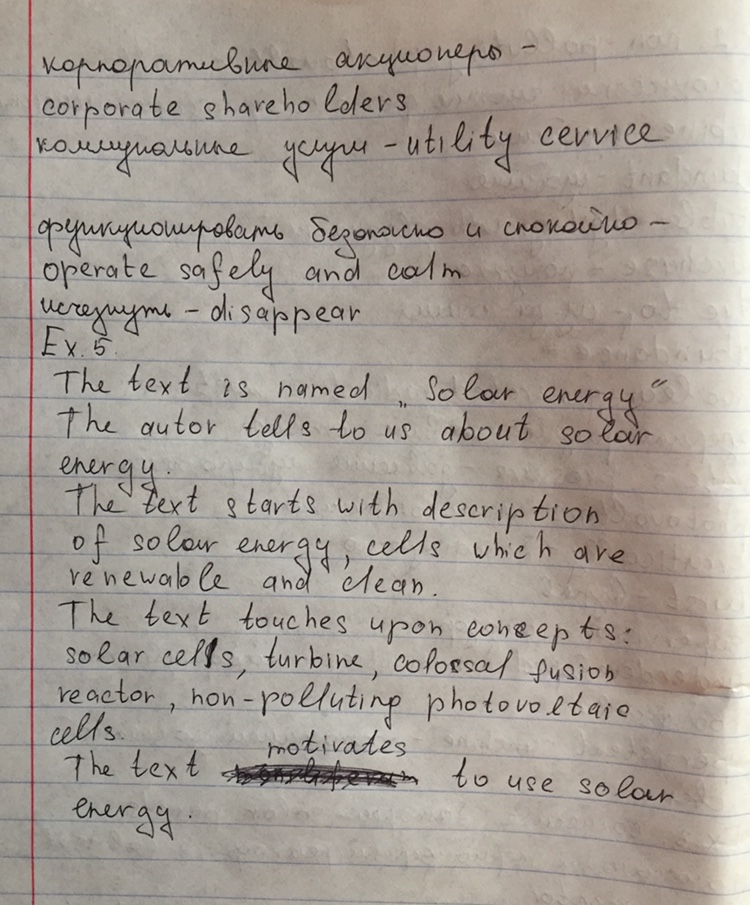 корпоративные акционеры -
corporate shareholders
коммунальные услуги - utility cervice
функционировать безопасно и спокойно -
operate safely and calm
исчезнуть - disappear
Ex. 5.
The text is named „Solar energy“
The autor tells to us about solar
energy.
The text starts with description
of solar energy, cells which are
renewable and clean.
The text touches upon concepts:
solar cells, turbine, colossal fusion
reactor, non-polluting photovoltaic
cells.
motivates
The text to use solar
energy.